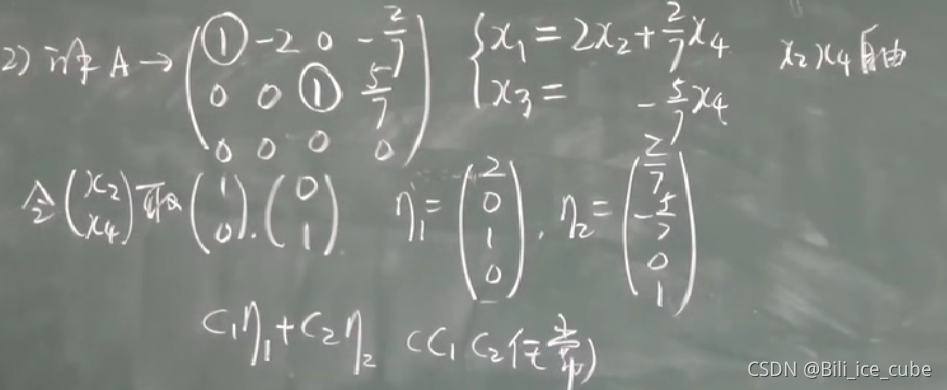 2) 设 A → ( ① -2 0 -2/7 ; 0 0 ① 5/7 ; 0 0 0 0 ) { x₁ = 2x₂ + 2/7 x₄ ; x₃ = -5/7 x₄ x₂ x₄ 自由
令 ( x₂ ; x₄ ) 取 ( 1 ; 0 ) . ( 0 ; 1 ) η₁ = ( 2 ; 0 ; 1 ; 0 ) , η₂ = ( 2/7 ; -5/7 ; 0 ; 1 )
C₁η₁ + C₂η₂ (C₁ C₂ 任意)
CSDN @Bili_ice_cube